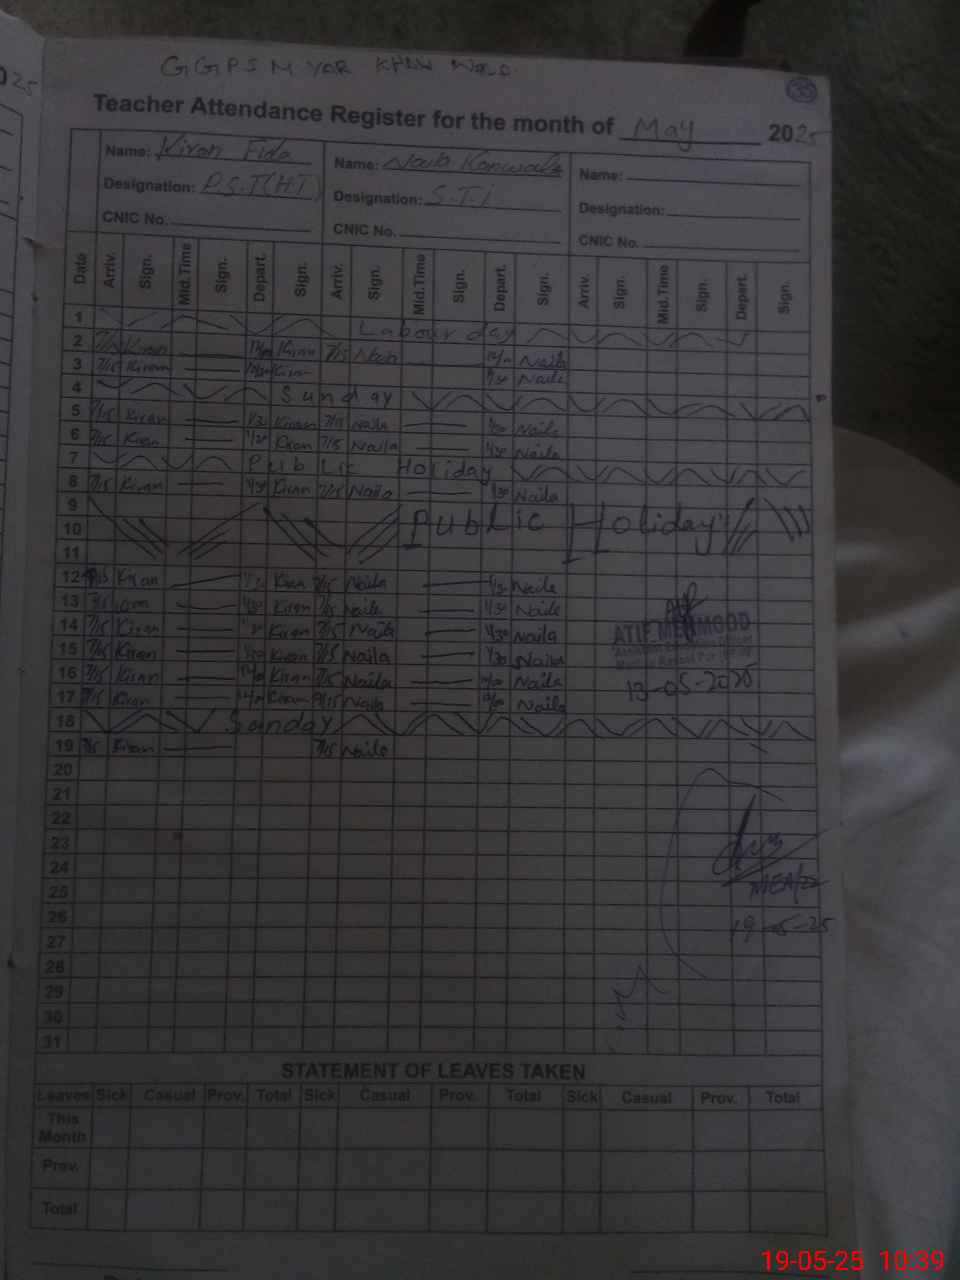 2025
GGPS M YAR KHAN
35
Teacher Attendance Register for the month of May 2025
Name: Kiran Fida Name: Name:
Designation: P.S.T(H.T) Designation: S.T.I Designation:
CNIC No. CNIC No. CNIC No.
Date Arriv. Sign. Mid.Time Sign. Depart. Sign. Arriv. Sign. Mid.Time Sign. Depart. Sign. Arriv. Sign. Mid.Time Sign. Depart. Sign.
1 Labour day
2 7/15 Kiran Kiran 7/15 Naila
3 7/15 Kiran Kiran Naila
4 Sunday
5 7/15 Kiran 1/30 Kiran 7/15 Naila 1/30 Naila
6 7/15 Kiran 1/30 Kiran 7/15 Naila 1/30 Naila
7 Public Holiday
8 7/15 Kiran 1/30 Kiran 7/15 Naila 1/30 Naila
9
10 Public Holiday
11
12 7/15 Kiran 1/30 Kiran 7/15 Naila 1/30 Naila
13 7/15 Kiran 1/30 Kiran 7/15 Naila 1/30 Naila
14 7/15 Kiran 1/30 Kiran 7/15 Naila 1/30 Naila
15 7/15 Kiran 1/30 Kiran 7/15 Naila 1/30 Naila
16 7/15 Kiran Kiran 7/15 Naila Naila
17 7/15 Kiran Kiran 7/15 Naila Naila
ATIF MEHMOOD
Assistant Education Officer
13-05-2025
18 Sunday
19 7/15 Kiran 7/15 Naila
20
21
22
23
24
25
MEA/22
26
19-5-25
27
28
29
30
31
STATEMENT OF LEAVES TAKEN
Leaves Sick Casual Prov. Total Sick Casual Prov. Total Sick Casual Prov. Total
This Month
Prev.
Total
19-05-25 10:39